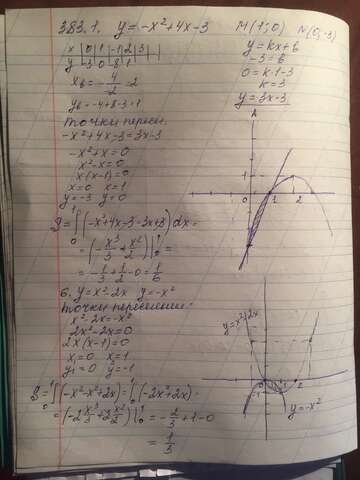 383.1. y=-x²+4x-3 M(1;0) N(0,-3)
x | 0 | 1 | -1 | 2 | 3 | y=kx+b
y | -3 | 0 | -8 | 1 | -3=b
x_b = -4/-2 = 2 0=k·1-3
k=3
y_b=-4+8-3=1 y=3x-3
точки пересеч.
-x²+4x-3=3x-3
-x²+x=0
x²-x=0
x(x-1)=0
x=0 x=1
y=-3 y=0
S=∫₀¹(-x²+4x-3-3x+3)dx=
=(-x³/3+x²/2)|₀¹=
=-1/3+1/2-0=1/6
б, y=x²-2x y=-x²
точки пересечения:
x²-2x=-x²
2x²-2x=0
2x(x-1)=0
x₁=0 x=1
y₁=0 y=-1
S=∫₀¹(-x²-x²+2x)=∫₀¹(-2x²+2x)=
=(-2x³/3+2x²/2)|₀¹=-2/3+1-0
=1/3
y=x²-2x
y=-x²